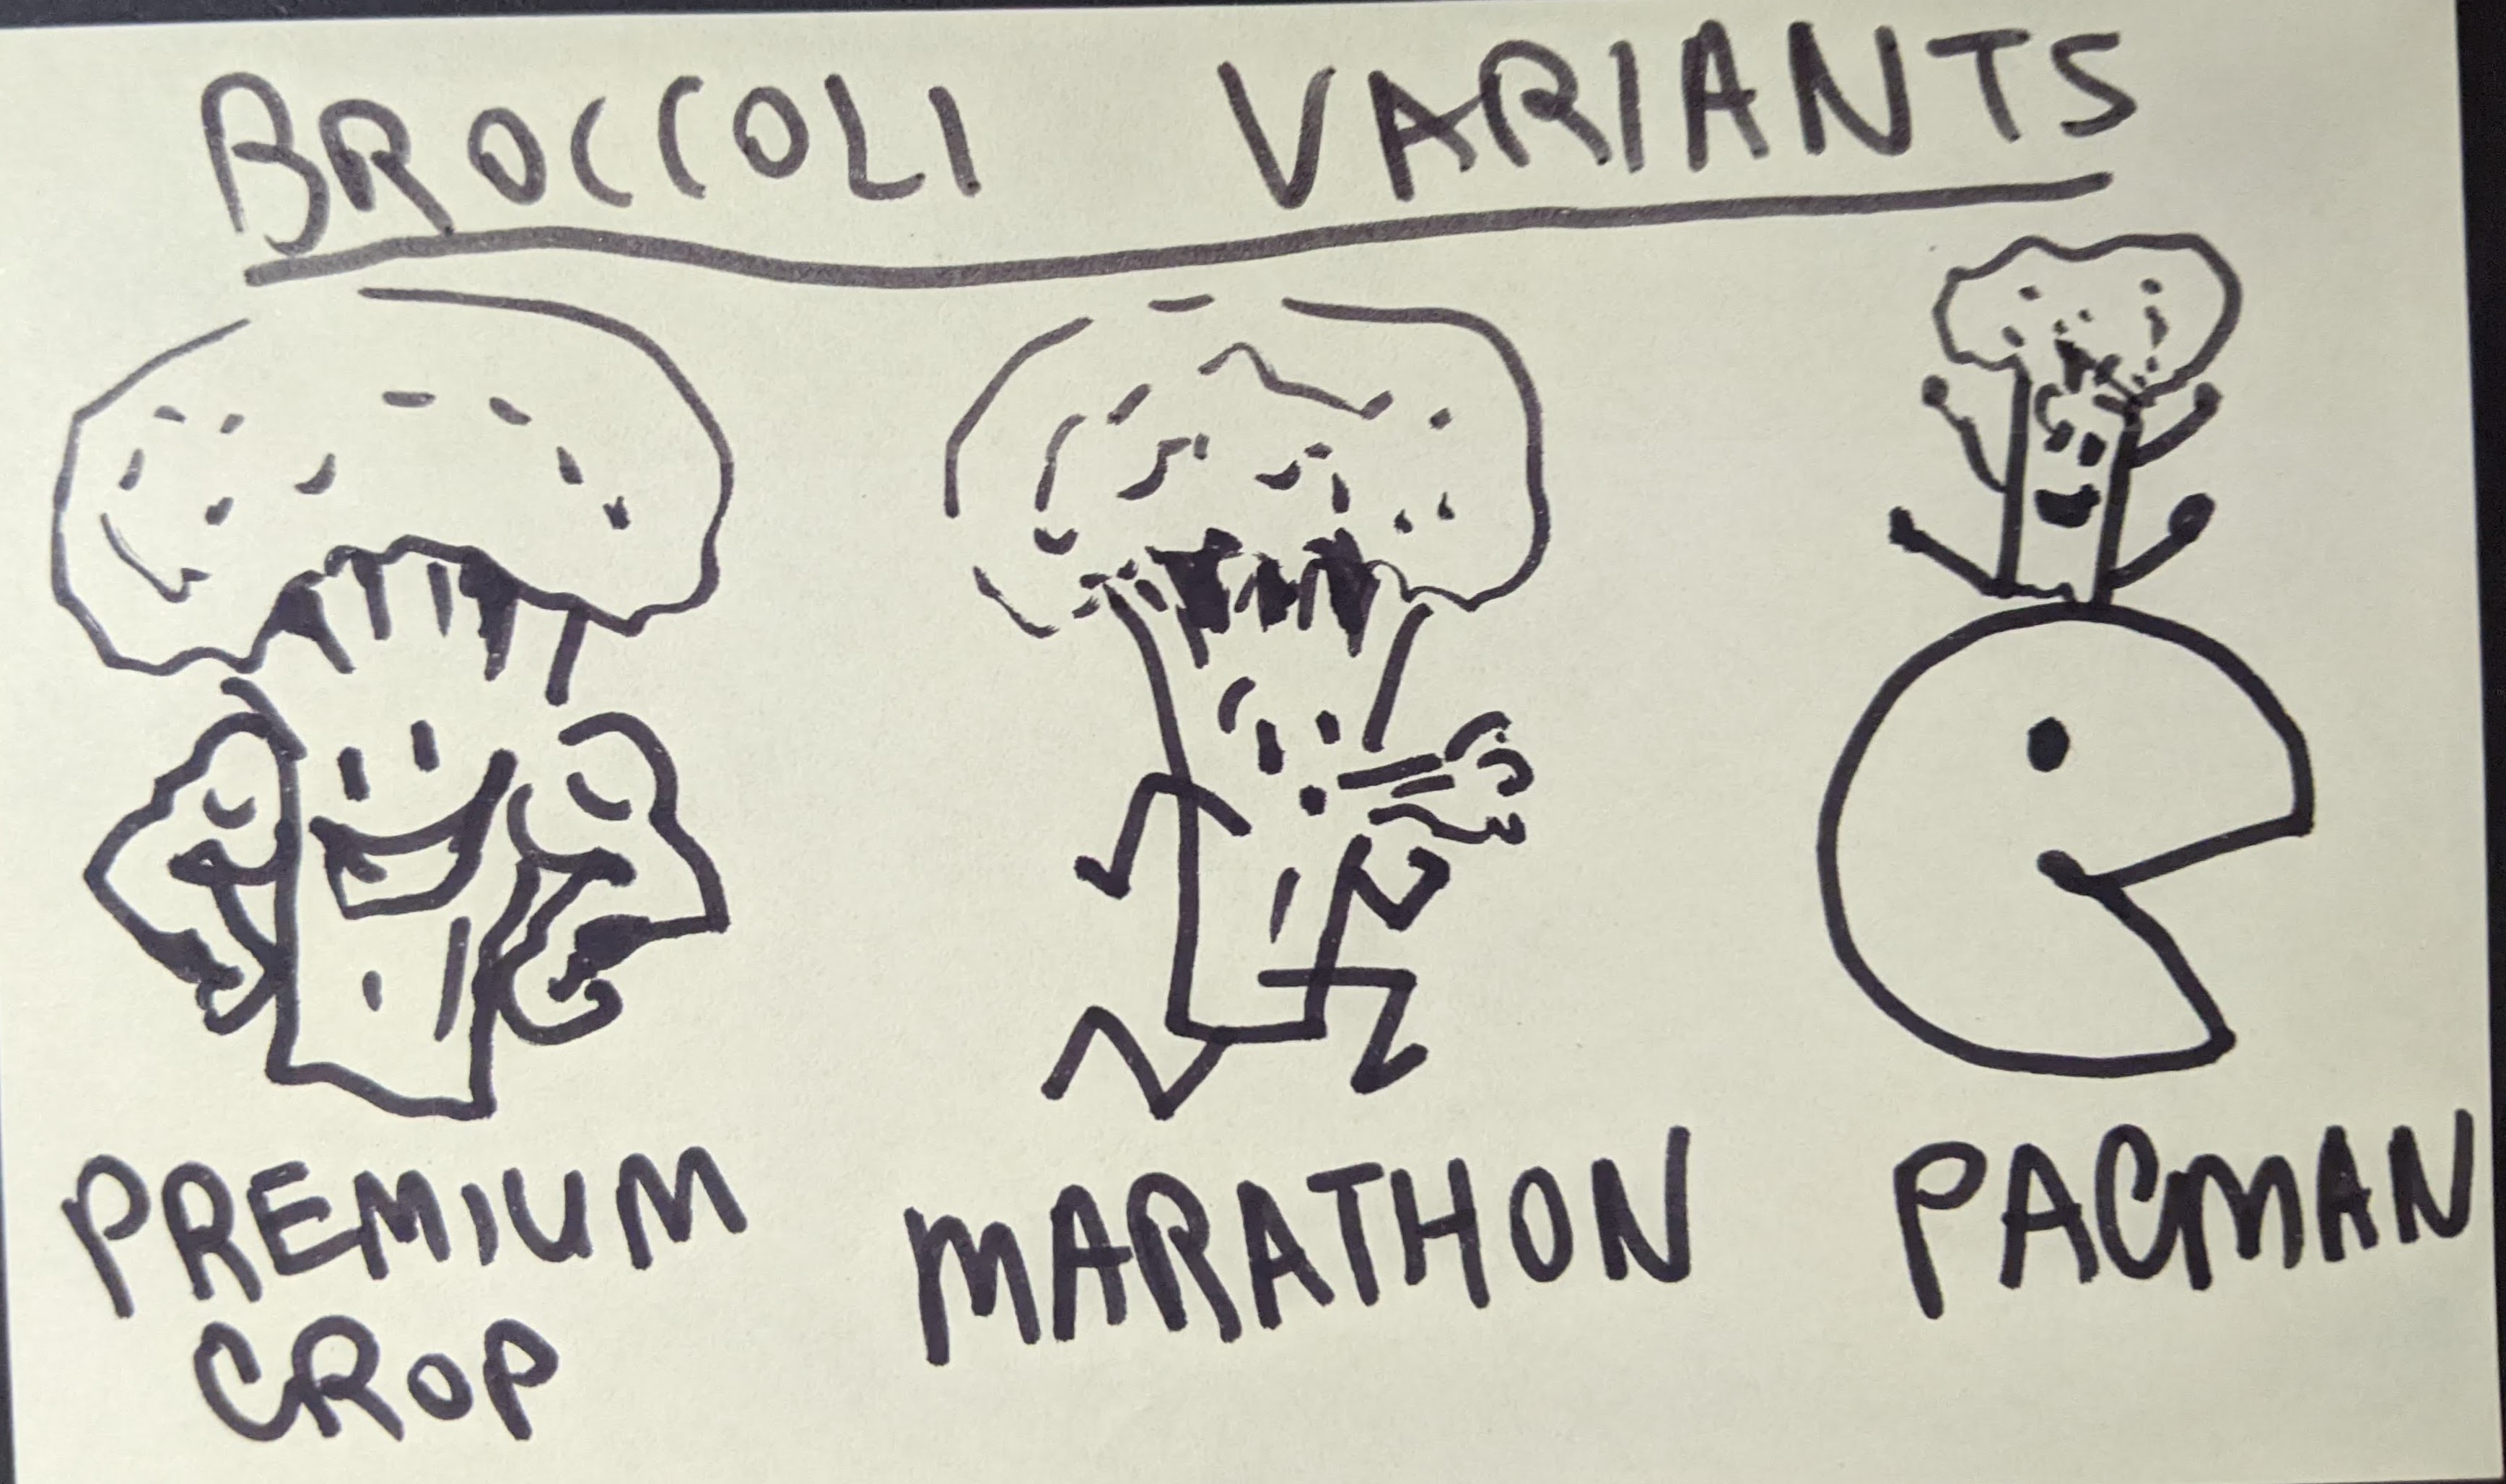 BROCCOLI VARIANTS
PREMIUM
CROP
MARATHON
PACMAN